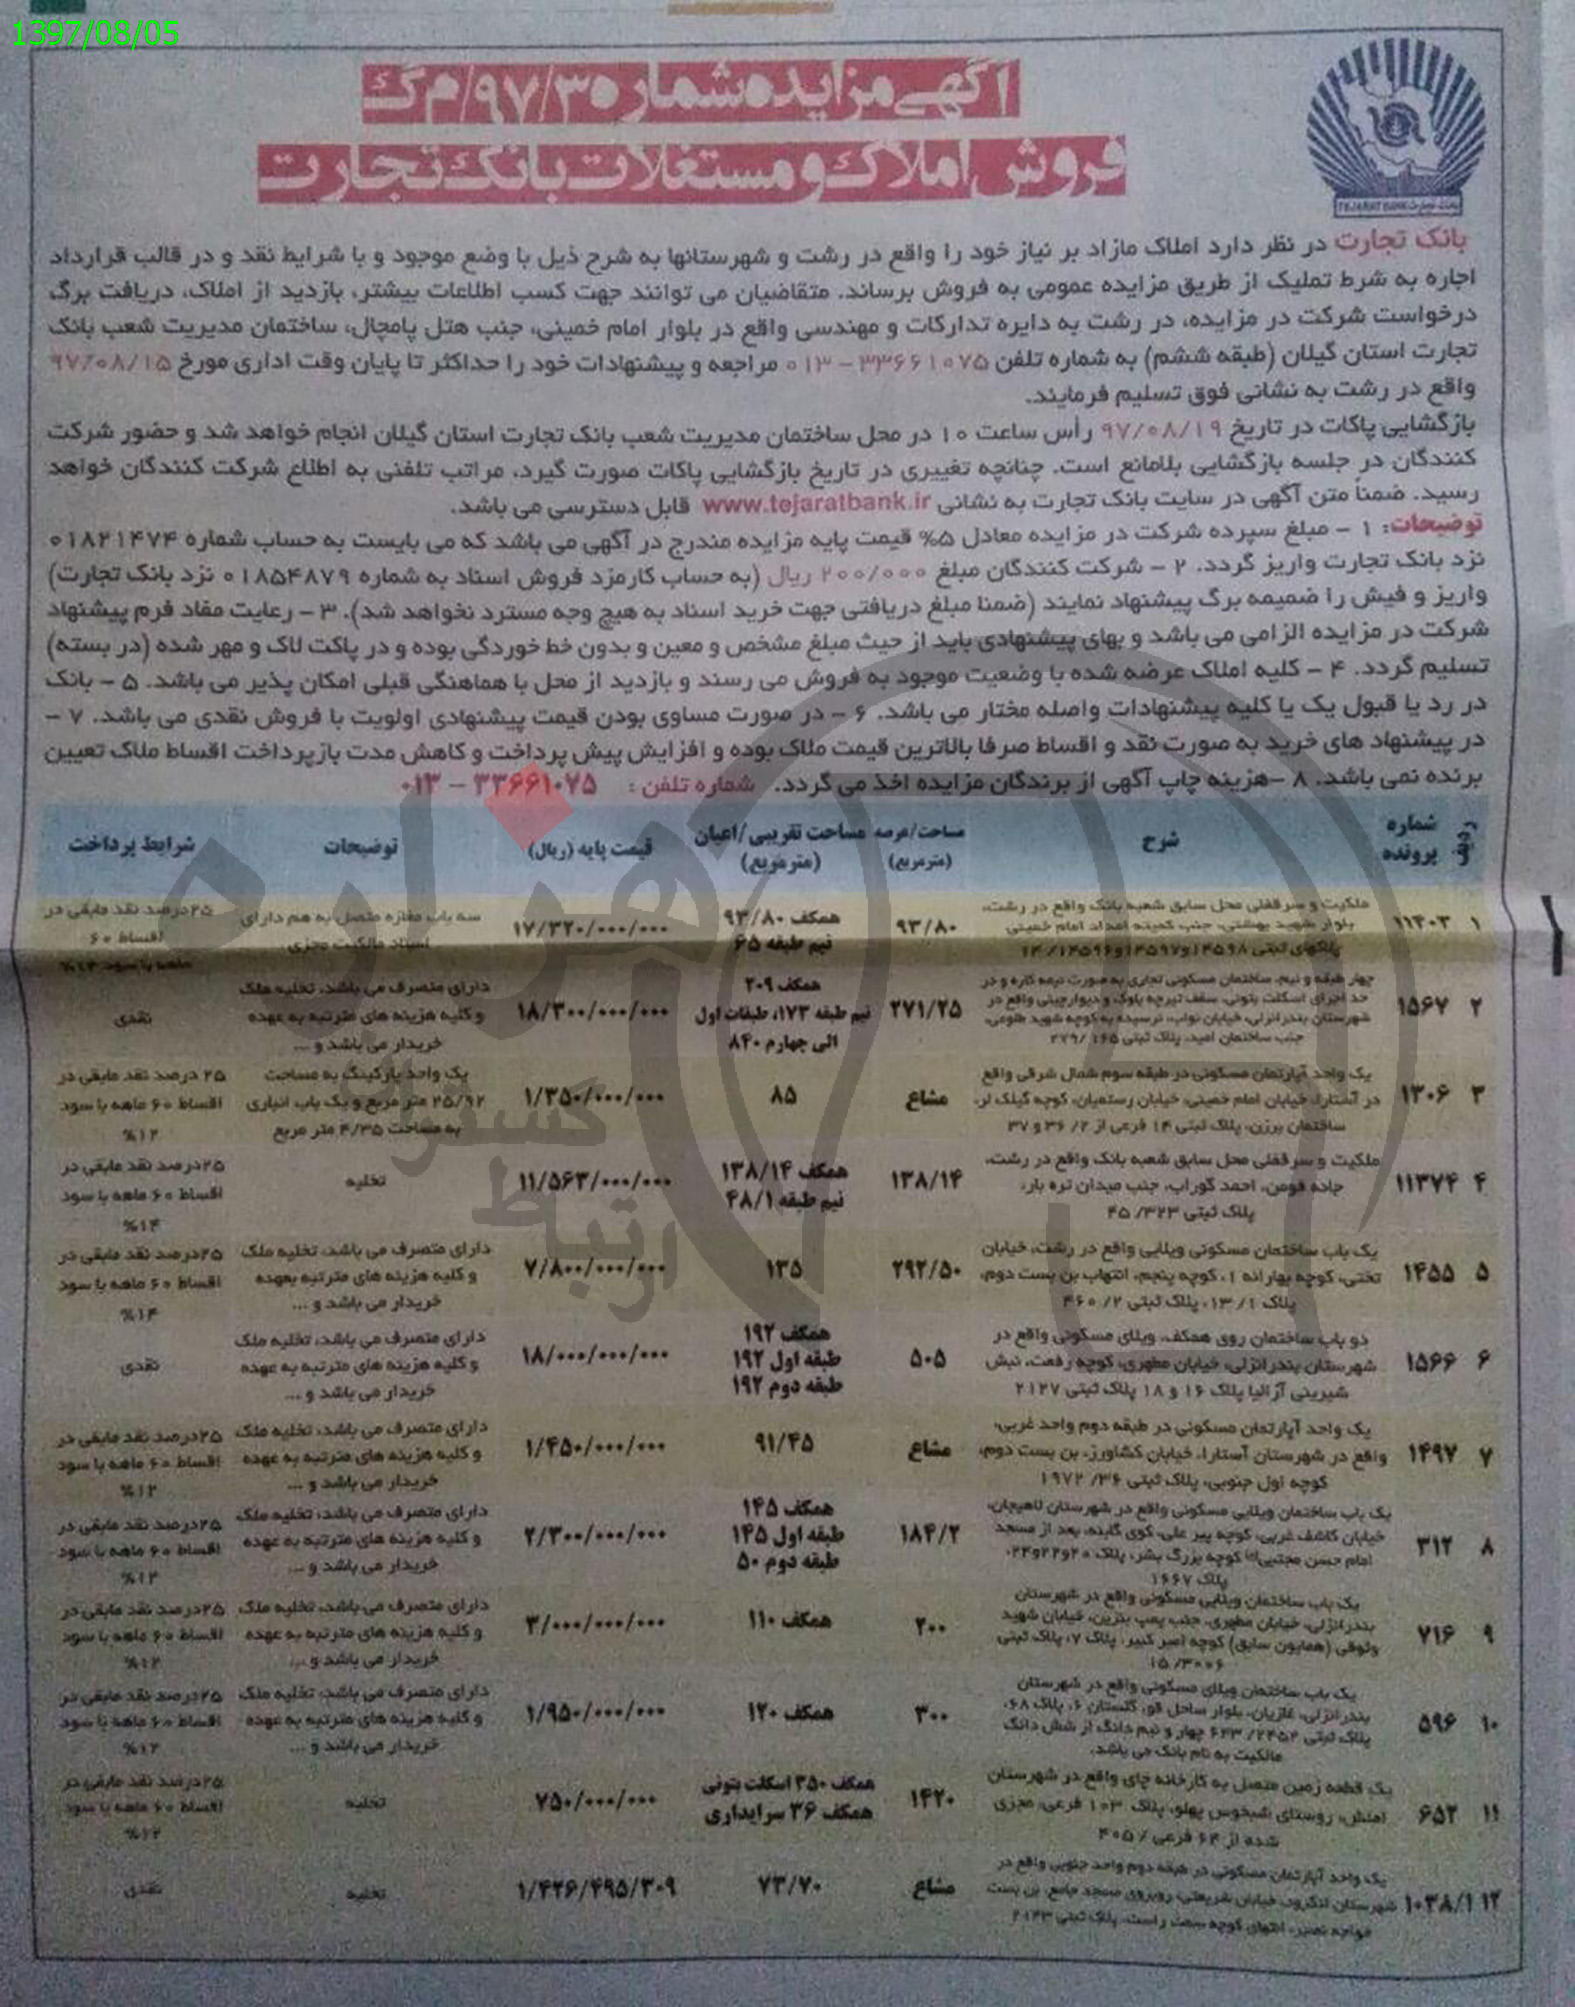 1397/08/05
آگهی مزایده شماره ۹۷/۳/م گ
فروش املاک و مستغلات بانک تجارت
بانک تجارت TEJARAT BANK
بانک تجارت در نظر دارد املاک مازاد بر نیاز خود را واقع در رشت و شهرستانها به شرح ذیل با وضع موجود و با شرایط نقد و در قالب قرارداد
اجاره به شرط تملیک از طریق مزایده عمومی به فروش برساند. متقاضیان می توانند جهت کسب اطلاعات بیشتر، بازدید از املاک، دریافت برگ
درخواست شرکت در مزایده، در رشت به دایره تدارکات و مهندسی واقع در بلوار امام خمینی، جنب هتل پامچال، ساختمان مدیریت شعب بانک
تجارت استان گیلان (طبقه ششم) به شماره تلفن ۳۳۶۶۱۰۷۵ – ۰۱۳ مراجعه و پیشنهادات خود را حداکثر تا پایان وقت اداری مورخ ۹۷/۰۸/۱۵
واقع در رشت به نشانی فوق تسلیم فرمایند.
بازگشایی پاکات در تاریخ ۹۷/۰۸/۱۹ رأس ساعت ۱۰ در محل ساختمان مدیریت شعب بانک تجارت استان گیلان انجام خواهد شد و حضور شرکت
کنندگان در جلسه بازگشایی بلامانع است. چنانچه تغییری در تاریخ بازگشایی پاکات صورت گیرد، مراتب تلفنی به اطلاع شرکت کنندگان خواهد
رسید. ضمناً متن آگهی در سایت بانک تجارت به نشانی www.tejaratbank.ir قابل دسترسی می باشد.
توضیحات: ۱ – مبلغ سپرده شرکت در مزایده معادل ۵% قیمت پایه مزایده مندرج در آگهی می باشد که می بایست به حساب شماره ۰۱۸۲۱۴۷۴
نزد بانک تجارت واریز گردد. ۲ – شرکت کنندگان مبلغ ۲۰۰/۰۰۰ ریال (به حساب کارمزد فروش اسناد به شماره ۰۱۸۵۴۸۷۹ نزد بانک تجارت)
واریز و فیش را ضمیمه برگ پیشنهاد نمایند (ضمنا مبلغ دریافتی جهت خرید اسناد به هیچ وجه مسترد نخواهد شد). ۳ – رعایت مفاد فرم پیشنهاد
شرکت در مزایده الزامی می باشد و بهای پیشنهادی باید از حیث مبلغ مشخص و معین و بدون خط خوردگی بوده و در پاکت لاک و مهر شده (در بسته)
تسلیم گردد. ۴ – کلیه املاک عرضه شده با وضعیت موجود به فروش می رسند و بازدید از محل با هماهنگی قبلی امکان پذیر می باشد. ۵ – بانک
در رد یا قبول یک یا کلیه پیشنهادات واصله مختار می باشد. ۶ – در صورت مساوی بودن قیمت پیشنهادی اولویت با فروش نقدی می باشد. ۷ –
در پیشنهاد های خرید به صورت نقد و اقساط صرفا بالاترین قیمت ملاک بوده و افزایش پیش پرداخت و کاهش مدت بازپرداخت اقساط ملاک تعیین
برنده نمی باشد. ۸ –هزینه چاپ آگهی از برندگان مزایده اخذ می گردد. شماره تلفن : ۳۳۶۶۱۰۷۵ – ۰۱۳
ردیف شماره پرونده شرح مساحت/عرصه (مترمربع) مساحت تقریبی/اعیان (مترمربع) قیمت پایه (ریال) توضیحات شرایط پرداخت
ملکیت و سرقفلی محل سابق شعبه بانک واقع در رشت،
۱ ۱۱۴۰۳ بلوار شهید بهشتی، جنب کمیته امداد امام خمینی ۹۳/۸۰ همکف ۹۳/۸۰ ۱۷/۳۲۰/۰۰۰/۰۰۰ سه باب مغازه متصل به هم دارای ۲۵درصد نقد مابقی در
پلاکهای ثبتی ۱۴۵۹۸و۱۴۵۹۷و۱۴۵۹۶/ ۱۴ نیم طبقه ۶۵ اسناد مالکیت مجزی اقساط ۶۰
ماهه با سود ۱۴%
چهار طبقه و نیم، ساختمان مسکونی تجاری به صورت نیمه کاره و در همکف ۲۰۹ دارای متصرف می باشد، تخلیه ملک
۲ ۱۵۶۷ حد اجرای اسکلت بتونی، سقف تیرچه بلوک و دیوارچینی واقع در ۲۷۱/۲۵ نیم طبقه ۱۷۳، طبقات اول ۱۸/۳۰۰/۰۰۰/۰۰۰ و کلیه هزینه های مترتبه به عهده نقدی
شهرستان بندرانزلی، خیابان نواب، نرسیده به کوچه شهید طلوعی، الی چهارم ۸۴۰ خریدار می باشد و ...
جنب ساختمان امید، پلاک ثبتی ۱۶۵ /۲۷۹
یک واحد آپارتمان مسکونی در طبقه سوم شمال شرقی واقع یک واحد پارکینگ به مساحت ۲۵ درصد نقد مابقی در
۳ ۱۳۰۶ در آستارا، خیابان امام خمینی، خیابان رستمیان، کوچه گیلک لر، مشاع ۸۵ ۱/۳۵۰/۰۰۰/۰۰۰ ۲۵/۹۲ متر مربع و یک باب انباری اقساط ۶۰ ماهه با سود
ساختمان برزن، پلاک ثبتی ۱۴ فرعی از ۲/ ۳۶ و ۳۷ به مساحت ۴/۳۵ متر مربع ۱۲%
ملکیت و سرقفلی محل سابق شعبه بانک واقع در رشت، همکف ۱۳۸/۱۴ ۲۵درصد نقد مابقی در
۴ ۱۱۳۷۴ جاده فومن، احمد گوراب، جنب میدان تره بار، ۱۳۸/۱۴ نیم طبقه ۴۸/۱ ۱۱/۵۶۳/۰۰۰/۰۰۰ تخلیه اقساط ۶۰ ماهه با سود
پلاک ثبتی ۳۲۳/ ۴۵ ۱۴%
یک باب ساختمان مسکونی ویلایی واقع در رشت، خیابان دارای متصرف می باشد، تخلیه ملک ۲۵درصد نقد مابقی در
۵ ۱۴۵۵ تختی، کوچه بهارانه ۱، کوچه پنجم، انتهای بن بست دوم، ۲۹۲/۵۰ ۱۳۵ ۷/۸۰۰/۰۰۰/۰۰۰ و کلیه هزینه های مترتبه بعهده اقساط ۶۰ ماهه با سود
پلاک ۱/ ۱۳، پلاک ثبتی ۲/ ۴۶۰ خریدار می باشد و ... ۱۴%
دو باب ساختمان روی همکف، ویلای مسکونی واقع در همکف ۱۹۲ دارای متصرف می باشد، تخلیه ملک
۶ ۱۵۶۶ شهرستان بندرانزلی، خیابان مطهری، کوچه رفعت، نبش ۵۰۵ طبقه اول ۱۹۲ ۱۸/۰۰۰/۰۰۰/۰۰۰ و کلیه هزینه های مترتبه به عهده نقدی
شیرینی آزالیا پلاک ۱۶ و ۱۸ پلاک ثبتی ۲۱۲۷ طبقه دوم ۱۹۲ خریدار می باشد و ...
یک واحد آپارتمان مسکونی در طبقه دوم واحد غربی، دارای متصرف می باشد، تخلیه ملک ۲۵درصد نقد مابقی در
۷ ۱۴۹۷ واقع در شهرستان آستارا، خیابان کشاورز، بن بست دوم، مشاع ۹۱/۴۵ ۱/۴۵۰/۰۰۰/۰۰۰ و کلیه هزینه های مترتبه به عهده اقساط ۶۰ ماهه با سود
کوچه اول جنوبی، پلاک ثبتی ۳۶/ ۱۹۷۲ خریدار می باشد و ... ۱۲%
یک باب ساختمان ویلایی مسکونی واقع در شهرستان لاهیجان، همکف ۱۴۵ دارای متصرف می باشد، تخلیه ملک ۲۵درصد نقد مابقی در
۸ ۳۱۲ خیابان کاشف غربی، کوچه پیر علی، کوی گابنه، بعد از مسجد ۱۸۴/۲ طبقه اول ۱۴۵ ۲/۳۰۰/۰۰۰/۰۰۰ و کلیه هزینه های مترتبه به عهده اقساط ۶۰ ماهه با سود
امام حسن مجتبی(ع) کوچه بزرگ بشر، پلاک ۲۰و۲۲و۲۴، طبقه دوم ۵۰ خریدار می باشد و ... ۱۲%
پلاک ۱۶۶۷
یک باب ساختمان ویلایی مسکونی واقع در شهرستان دارای متصرف می باشد، تخلیه ملک ۲۵درصد نقد مابقی در
۹ ۷۱۶ بندرانزلی، خیابان مطهری، جنب پمپ بنزین، خیابان شهید ۲۰۰ همکف ۱۱۰ ۳/۰۰۰/۰۰۰/۰۰۰ و کلیه هزینه های مترتبه به عهده اقساط ۶۰ ماهه با سود
وثوقی (همایون سابق) کوچه امیر کبیر، پلاک ۷، پلاک ثبتی خریدار می باشد و ... ۱۲%
۳۰۰۶/ ۱۵
یک باب ساختمان ویلای مسکونی واقع در شهرستان دارای متصرف می باشد، تخلیه ملک ۲۵درصد نقد مابقی در
۱۰ ۵۹۶ بندرانزلی، غازیان، بلوار ساحل قو، گلستان ۶، پلاک ۶۸، ۳۰۰ همکف ۱۲۰ ۱/۹۵۰/۰۰۰/۰۰۰ و کلیه هزینه های مترتبه به عهده اقساط ۶۰ ماهه با سود
پلاک ثبتی ۲۴۵۲/ ۶۴۳ چهار و نیم دانگ از شش دانگ خریدار می باشد و ... ۱۲%
مالکیت به نام بانک می باشد.
یک قطعه زمین متصل به کارخانه چای واقع در شهرستان همکف ۳۵۰ اسکلت بتونی ۲۵درصد نقد مابقی در
۱۱ ۶۵۲ املش، روستای شبخوس پهلو، پلاک ۱۰۳ فرعی، مجزی ۱۴۲۰ همکف ۳۶ سرایداری ۷۵۰/۰۰۰/۰۰۰ تخلیه اقساط ۶۰ ماهه با سود
شده از ۶۴ فرعی / ۴۰۵ ۱۲%
یک واحد آپارتمان مسکونی در طبقه دوم واحد جنوبی واقع در
۱۲ ۱۰۳۸/۱ شهرستان لنگرود، خیابان شریعتی، روبروی مسجد جامع، بن بست مشاع ۷۳/۷۰ ۱/۴۲۶/۴۹۵/۳۰۹ تخلیه نقدی
خواجه نصیر، انتهای کوچه سمت راست، پلاک ثبتی ۲۱۴۳
هزاره
گستر
ارتباط